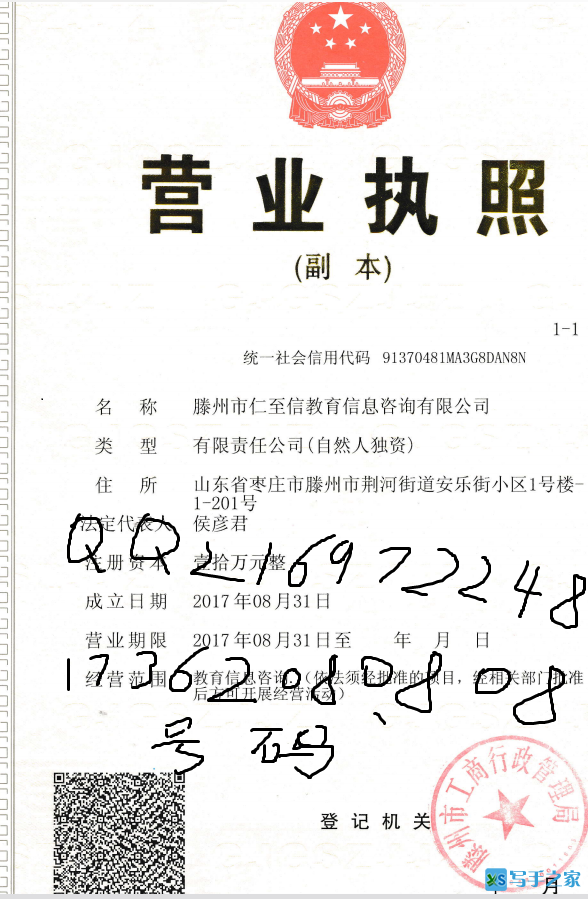 营业执照
(副 本)
1-1
统一社会信用代码 91370481MA3G8DAN8N
名称 滕州市仁至信教育信息咨询有限公司
类型 有限责任公司(自然人独资)
住所 山东省枣庄市滕州市荆河街道安乐街小区1号楼-
1-201号
法定代表人 侯彦君
QQ2169722248
注册资本 壹拾万元整
成立日期 2017年08月31日
营业期限 2017年08月31日至 年 月 日
17362080808
经营范围 教育信息咨询.（依法须经批准的项目，经相关部门批准
后方可开展经营活动）
号码
登记机关
滕州市工商行政管理局
写手之家
年 月